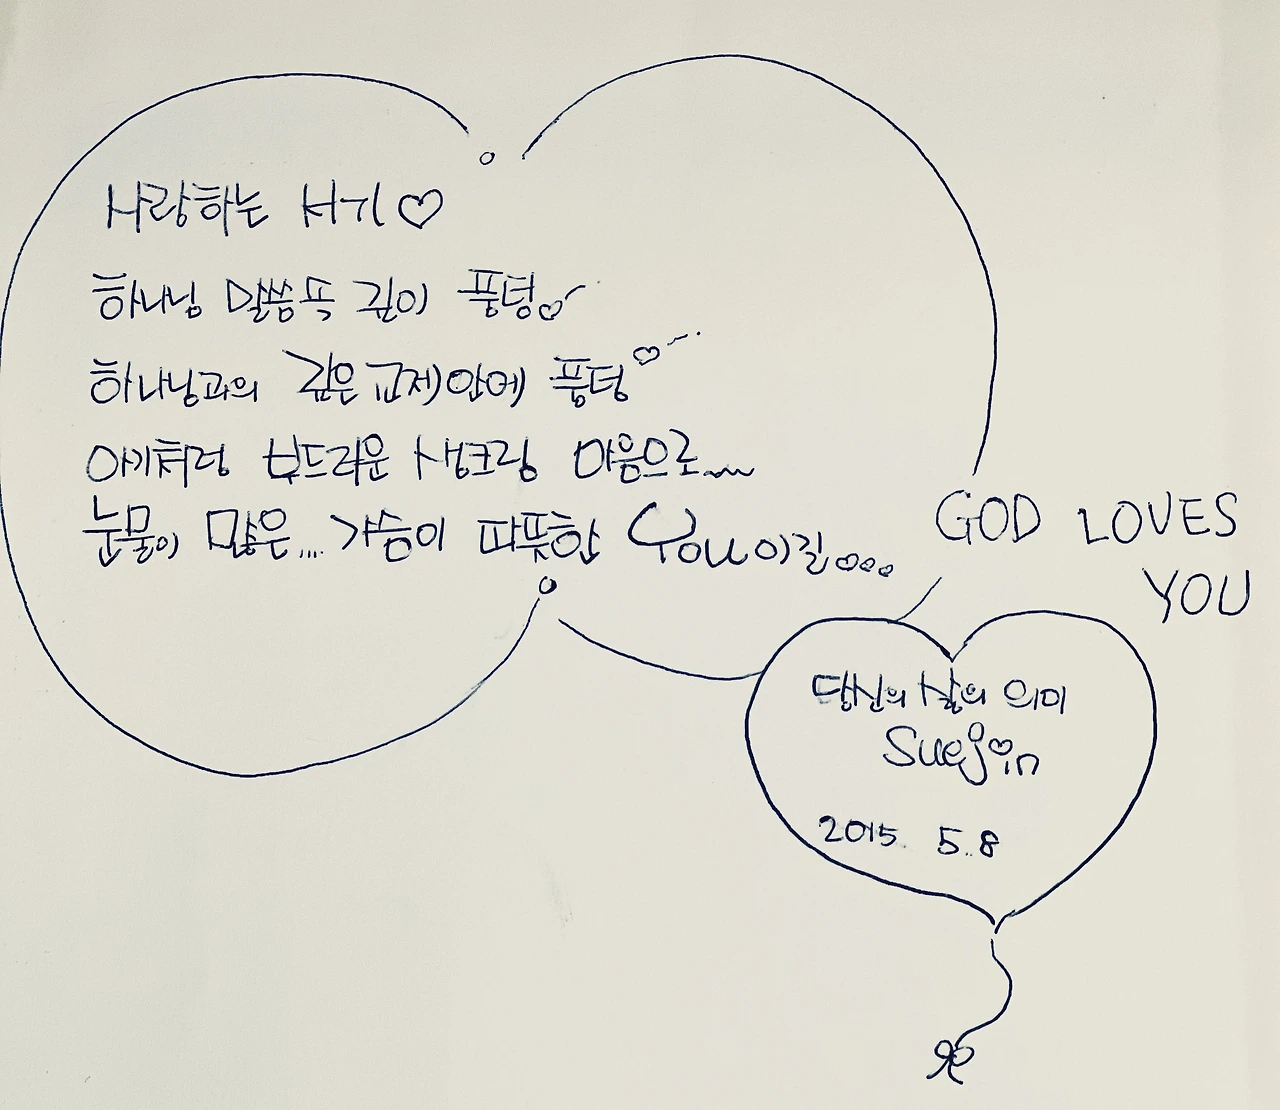 사랑하는 서기♡
하나님 말씀뚝 깊이 풍덩♡
하나님과의 깊은 교제안에 풍덩♡
아기처럼 부드러운 생크림 마음으로~~
눈물이 많은... 가슴이 따뜻한 You이길...
GOD LOVES
YOU
당신의 삶의 의미
Suejin
2015. 5.8